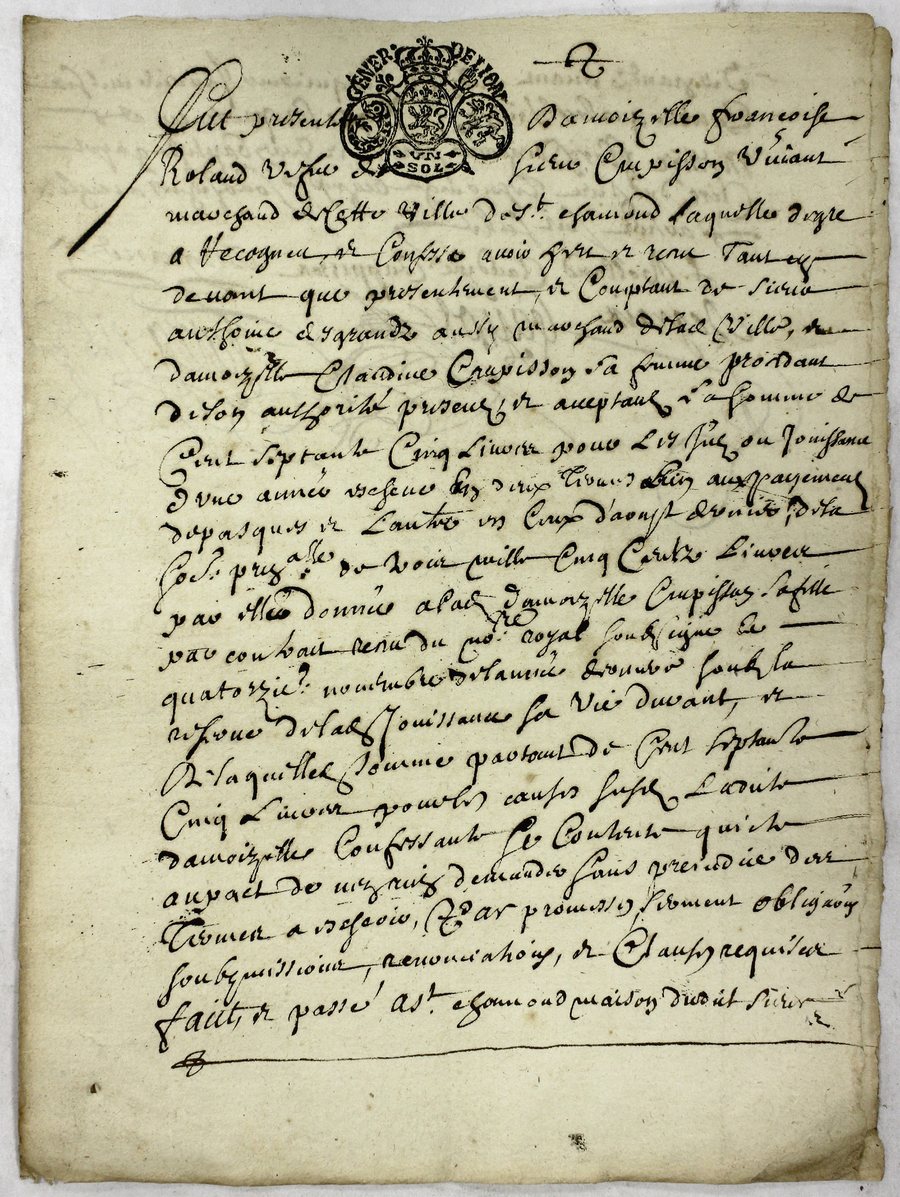 GENER. DE LYON
UN
SOL
Fut presente Damoizelle francoise
Roland vefue de sieur Crupisson viuant
marchand de Cette ville de St. chamond laquelle de gre
a recogneu et Confesse auoir heu et receu Tant cy
deuant que presentement, et Comptant de sieur
anthoine desgrandz aussy marchand de lad ville, et
damoizelle Claudine Crupisson sa femme procedant
de son authorité presens et aceptans La somme de
Cent septante Cinq liures pour les ou Jouissance
d'une année escheue en deux termes aux payemens
de pasques et l'autre en Ceux d'aoust dernier, de la
de trois mille Cinq Centz liures
par elle donnée a lad damoizelle Crupisson sa fille
par contrait receu du no.re royal soubsigné le
quatorzie. nouembre de l'année soubz la
reserue de lad Jouissance sa vie durant, et
de laquelle somme partant de Cent septante
Cinq liures pour les causes susd Ladite
damoizelle Confessante se Contente quicte
au pact de demander sans preiudice des
Termes a escheoir, Par promesses, serment obligaons
soubzmissions, renonciations, et Clauses requises
fait et passé a St. chamond maison dudit sieur